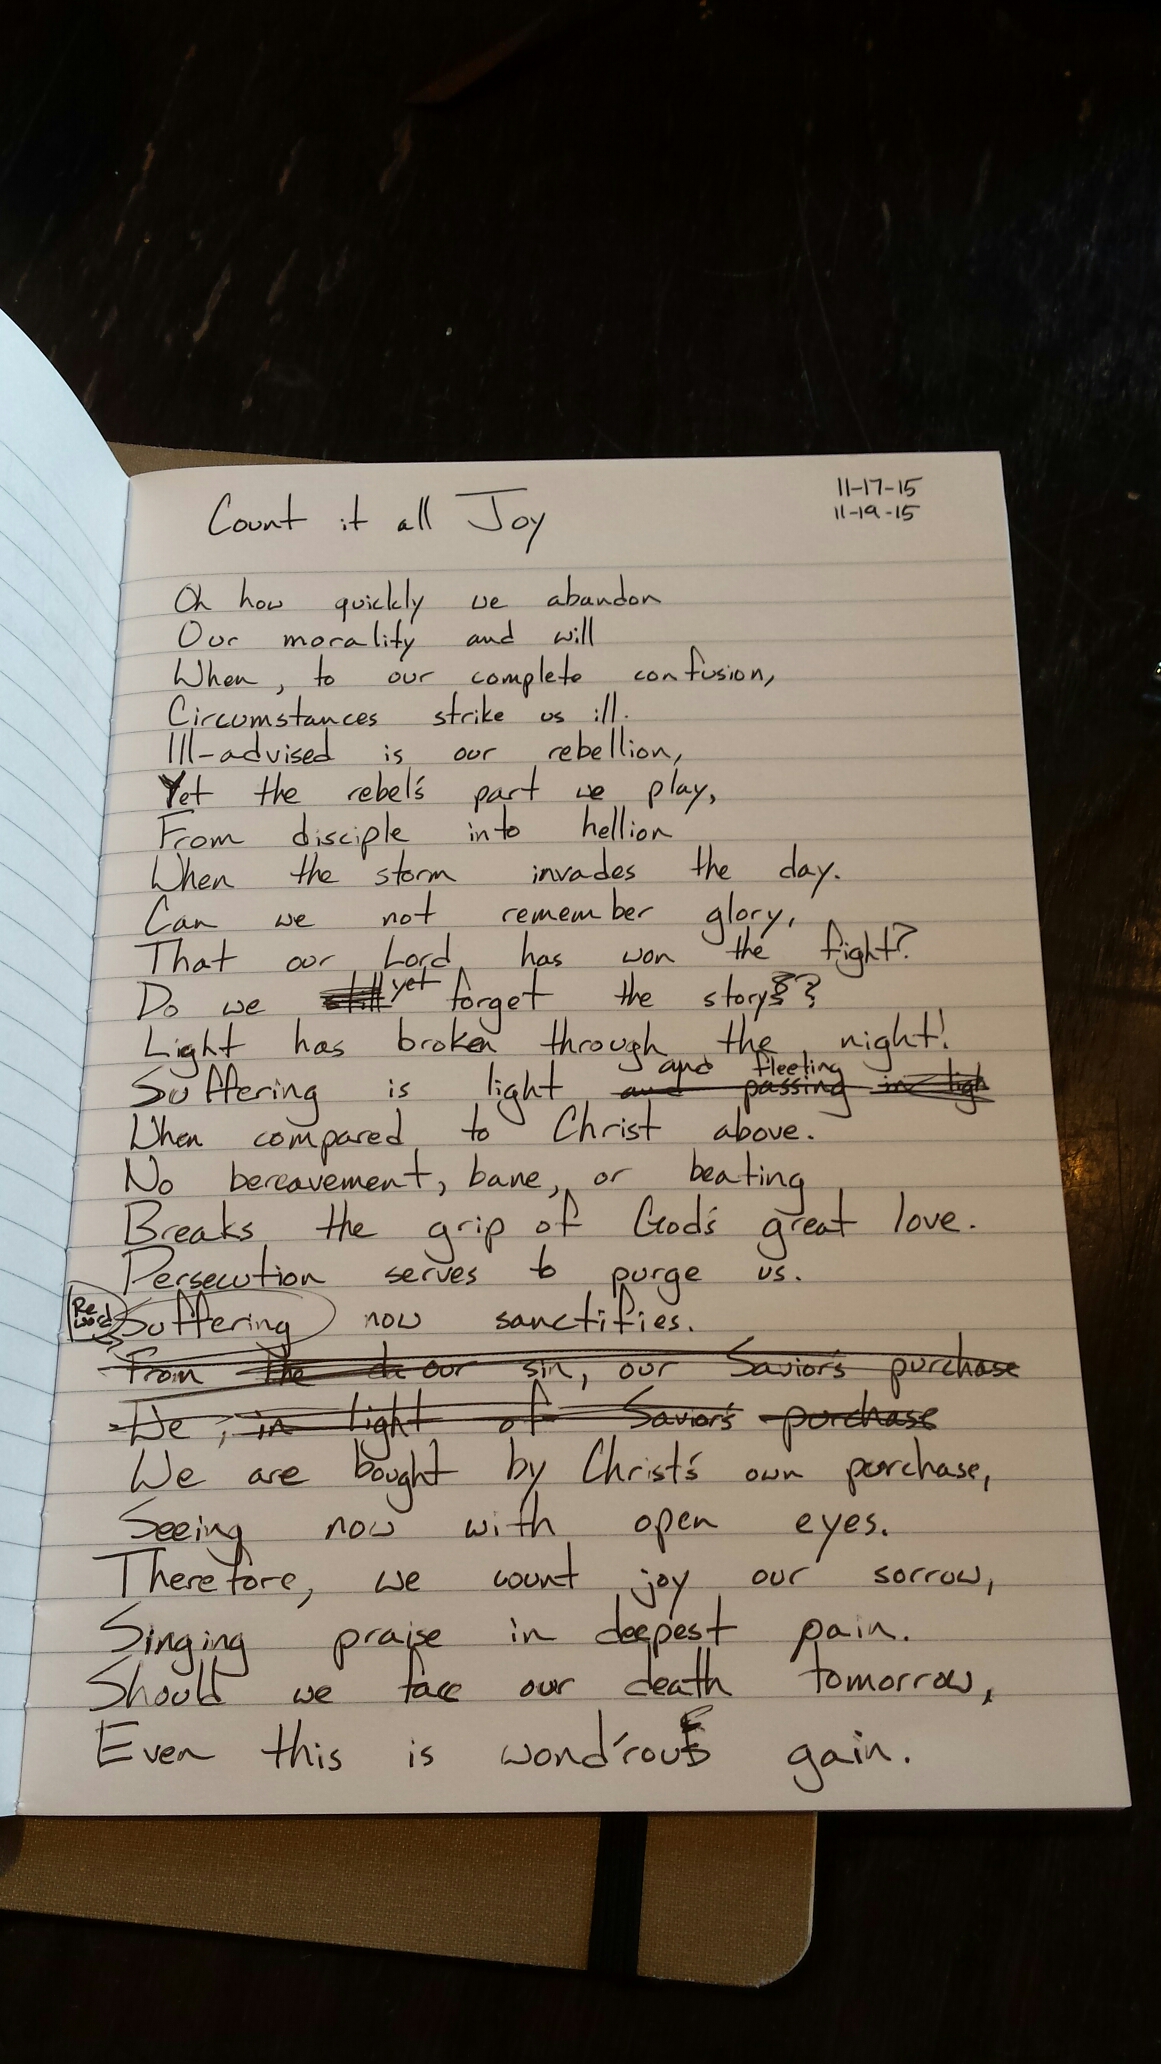 Count it all Joy
11-17-15
11-19-15
Oh how quickly we abandon
Our morality and will
When, to our complete confusion,
Circumstances strike us ill.
Ill-advised is our rebellion,
Yet the rebel's part we play,
From disciple into hellion
When the storm invades the day.
Can we not remember glory,
That our Lord has won the fight?
Do we still yet forget the story?
Light has broken through the night!
and fleeting
Suffering is light and passing in ligh
When compared to Christ above.
No bereavement, bane, or beating
Breaks the grip of God's great love.
Persecution serves to purge us.
Re word
Suffering now sanctifies.
From the da our sin, our Savior's purchase
We, in light of Savior's purchase
We are bought by Christ's own purchase,
Seeing now with open eyes.
Therefore, we count joy our sorrow,
Singing praise in deepest pain.
Should we face our death tomorrow,
Even this is wond'rous gain.